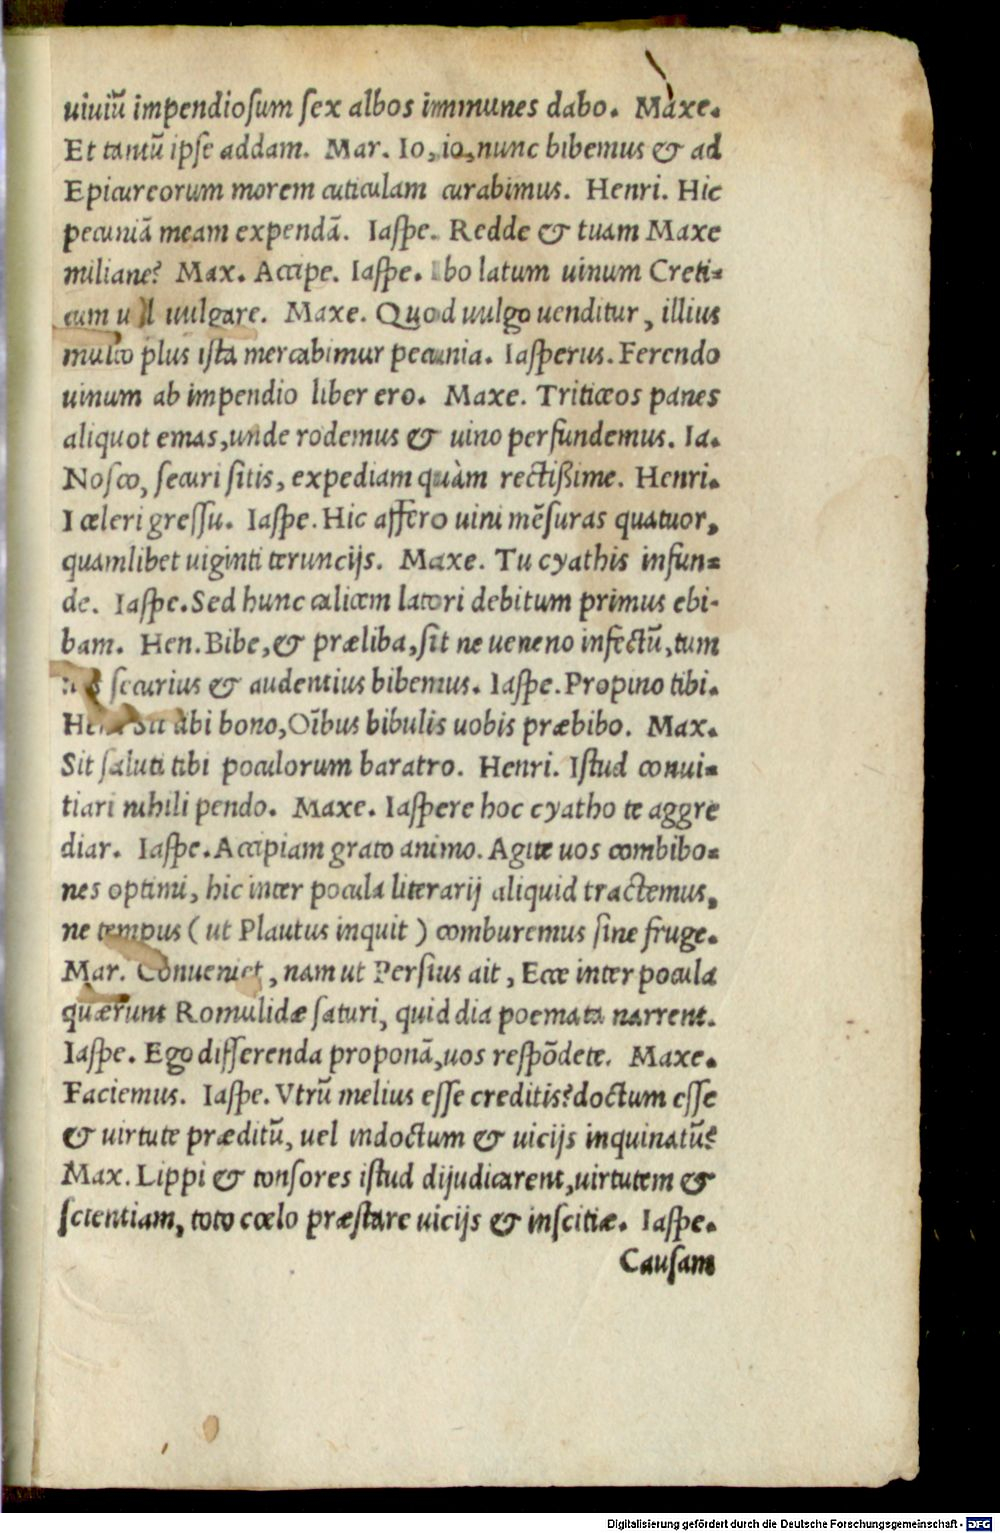 uiuiũ impendioſum ſex albos immunes dabo. Maxe.
Et tantũ ipſe addam. Mar. Io, io, nunc bibemus & ad
Epicureorum morem cuticulam curabimus. Henri. Hic
pecuniã meam expendã. Iaſpe. Redde & tuam Maxe
miliane? Max. Accipe. Iaſpe. bo latum uinum Creti=
cum uulgare. Maxe. Quod uulgo uenditur, illius
multo plus iſta mercabimur pecunia. Iaſperus. Ferendo
uinum ab impendio liber ero. Maxe. Triticeos panes
aliquot emas, unde rodemus & uino perfundemus. Ia.
Noſco, ſecuri ſitis, expediam quàm rectißime. Henri.
I celeri greſſu. Iaſpe. Hic affero uini mẽſuras quatuor,
quamlibet uiginti teruncijs. Maxe. Tu cyathis infun=
de. Iaſpe. Sed hunc calicem latori debitum primus ebi-
bam. Hen. Bibe, & præliba, ſit ne ueneno infectũ, tum
ſecurius & audentius bibemus. Iaſpe. Propino tibi.
Hen. Sit tibi bono, Oĩbus bibulis uobis præbibo. Max.
Sit ſaluti tibi poculorum baratro. Henri. Iſtud conui=
tiari nihili pendo. Maxe. Iaſpere hoc cyatho te aggre
diar. Iaſpe. Accipiam grato animo. Agite uos combibo=
nes optimi, hic inter pocula literarij aliquid tractemus,
ne tempus ( ut Plautus inquit ) comburemus ſine fruge.
Mar. Conueniet, nam ut Perſius ait, Ecce inter pocula
quærunt Romulidæ ſaturi, quid dia poemata narrent.
Iaſpe. Ego differenda proponã, uos reſpõdete. Maxe.
Faciemus. Iaſpe. Vtrũ melius eſſe creditis? doctum eſſe
& uirtute præditũ, uel indoctum & uicijs inquinatũ?
Max. Lippi & tonſores iſtud dijudicarent, uirtutem &
ſcientiam, toto cœlo præſtare uicijs & inſcitiæ. Iaſpe.
Cauſam
Digitalisierung gefördert durch die Deutsche Forschungsgemeinschaft - DFG